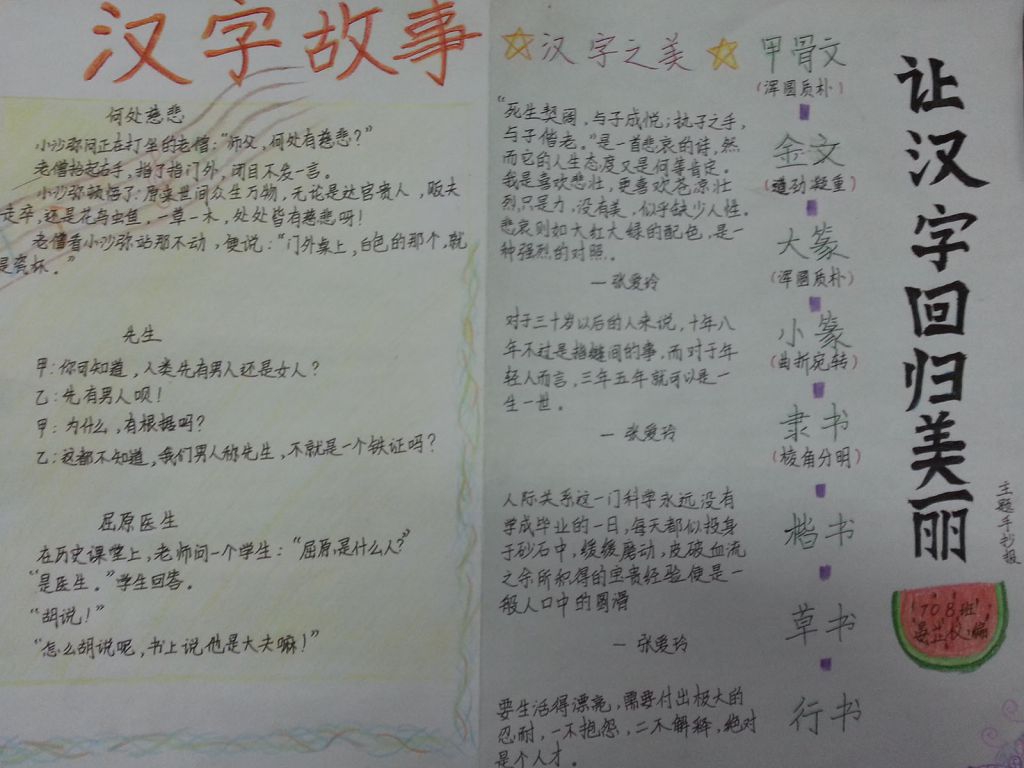 汉字故事
何处慈悲
小沙弥问正在打坐的老僧:“师父,何处有慈悲?”
老僧抬起右手,指了指门外,闭目不发一言。
小沙弥顿悟了:原来世间众生万物,无论是达官贵人,贩夫
走卒,还是花鸟虫鱼,一草一木,处处皆有慈悲呀!
老僧看小沙弥站那不动,便说:“门外桌上,白色的那个,就
是瓷杯。”
先生
甲:你可知道,人类先有男人还是女人?
乙:先有男人呗!
甲:为什么,有根据吗?
乙:这都不知道,我们男人称先生,不就是一个铁证吗?
屈原医生
在历史课堂上,老师问一个学生:“屈原是什么人?”
“是医生。”学生回答。
“胡说!”
“怎么胡说呢,书上说他是大夫嘛!”
汉字之美
“死生契阔,与子成悦;执子之手,
与子偕老。”是一首悲哀的诗,然
而它的人生态度又是何等肯定。
我是喜欢悲壮,更喜欢苍凉壮
烈只是力,没有美,似乎缺少人性。
悲哀则如大红大绿的配色,是一
种强烈的对照。
—张爱玲
对于三十岁以后的人来说,十年八
年不过是指缝间的事,而对于年
轻人而言,三年五年就可以是一
生一世。
— 张爱玲
人际关系这一门科学永远没有
学成毕业的一日,每天都似投身
于砂石中,缓缓磨动,皮破血流
之余所积得的宝贵经验便是一
般人口中的圆滑
— 张爱玲
要生活得漂亮,需要付出极大的
忍耐,一不抱怨,二不解释,绝对
是个人才。
甲骨文
(浑圆质朴)
金文
(遒劲凝重)
大篆
(浑圆质朴)
小篆
(曲折宛转)
隶书
(棱角分明)
楷书
草书
行书
让汉字回归美丽
主题手抄报
708班